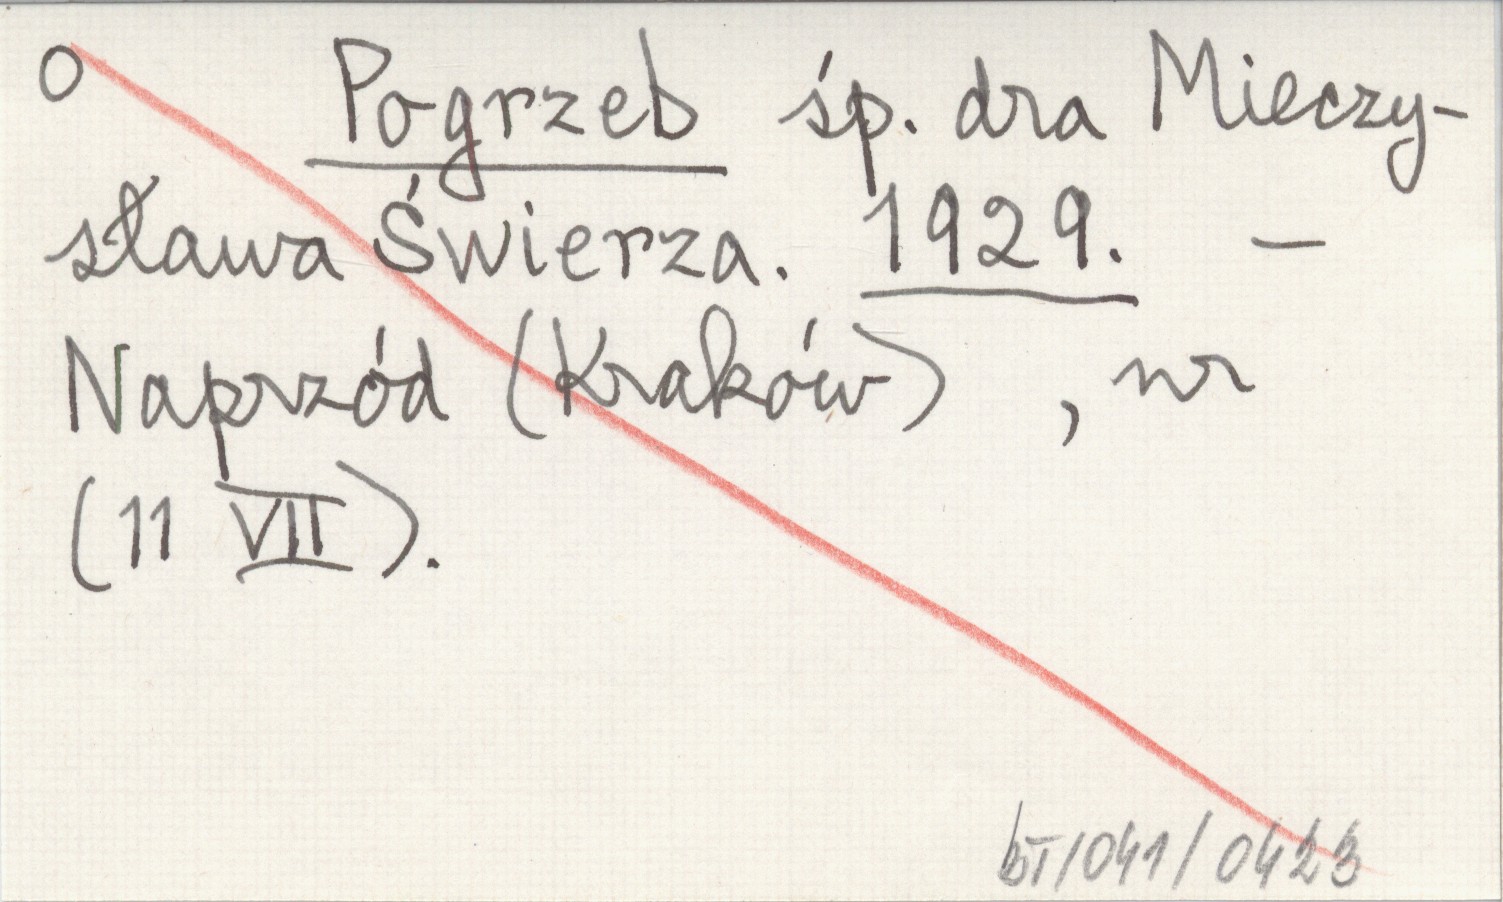 O Pogrzeb śp. dra Mieczy-
sława Świerza. 1929. —
Naprzód (Kraków) , nr
(11 VII).
BT/041/0423